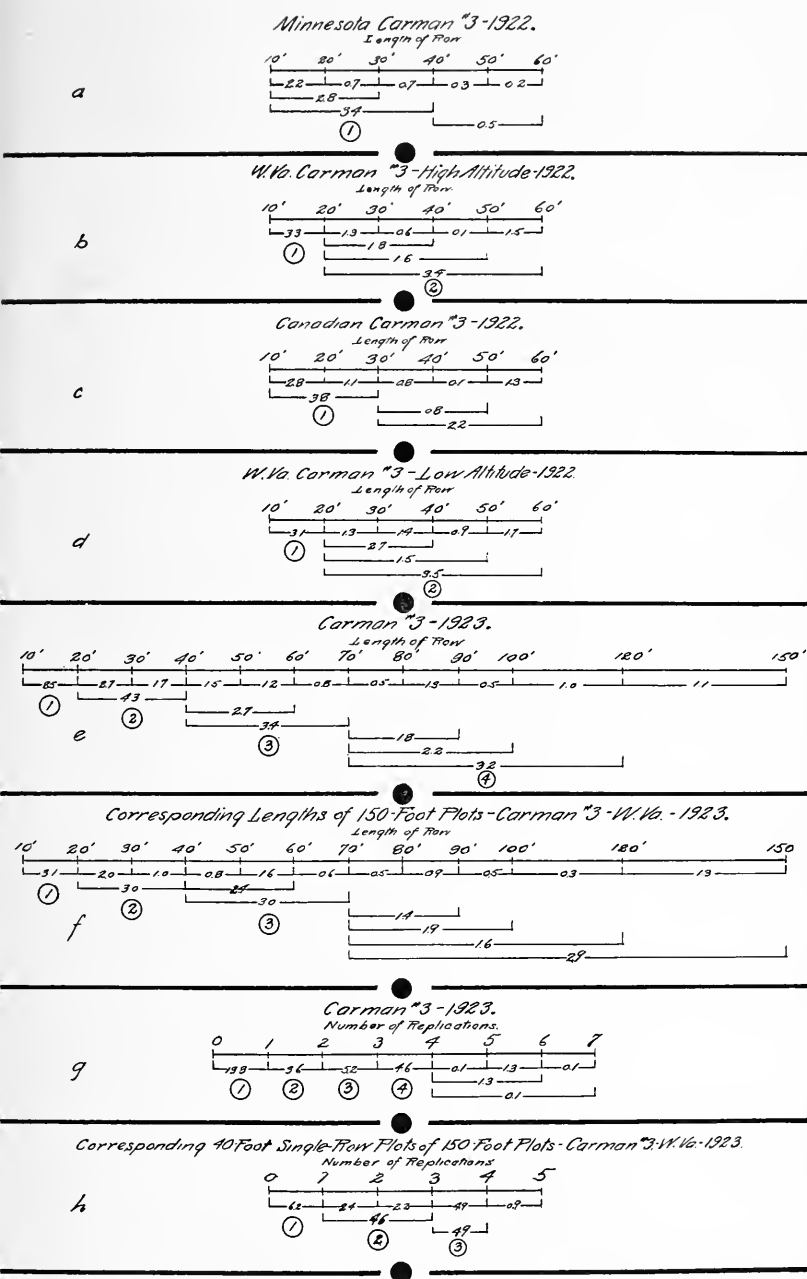 Minnesota Carman #3-1922.
Length of Row
10' 20' 30' 40' 50' 60'
2.2 0.7 0.7 0.3 0.2
a
2.8
3.4
1
0.5
W.Va. Carman #3-High Altitude-1922.
Length of Row
10' 20' 30' 40' 50' 60'
3.3 1.3 0.6 0.1 1.5
b
1 1.8
1.6
3.4
2
Canadian Carman #3-1922.
Length of Row
10' 20' 30' 40' 50' 60'
2.8 1.1 0.8 0.1 1.3
c
3.8
1 0.8
2.2
W.Va. Carman #3-Low Altitude-1922
Length of Row
10' 20' 30' 40' 50' 60'
3.1 1.3 1.4 0.9 1.7
d
1 2.7
1.5
3.5
2
Carman #3-1923.
Length of Row
10' 20' 30' 40' 50' 60' 70' 80' 90' 100' 120' 150'
8.5 2.7 1.7 1.5 1.2 0.8 0.5 1.3 0.5 1.0 1.1
1 4.3
2 2.7
3.4
e 3 1.8
2.2
3.2
4
Corresponding Lengths of 150-Foot Plots-Carman #3-W.Va.-1923.
Length of Row
10' 20' 30' 40' 50' 60' 70' 80' 90' 100' 120' 150
3.1 2.0 1.0 0.8 1.6 0.6 0.5 0.9 0.5 0.3 1.9
1 3.0 2.4
2 3.0
f 3 1.4
1.9
1.6
2.9
Carman #3-1923.
Number of Replications.
0 1 2 3 4 5 6 7
5.2 4.6 0.1 1.3 0.1
g
1 2 3 4 1.3
0.1
Corresponding 40 Foot Single-Row Plots of 150 Foot Plots-Carman #3-W.Va-1923.
Number of Replications
0 1 2 3 4 5
6.2 2.4 2.3 4.9 0.9
h
1 4.6
2 4.9
3